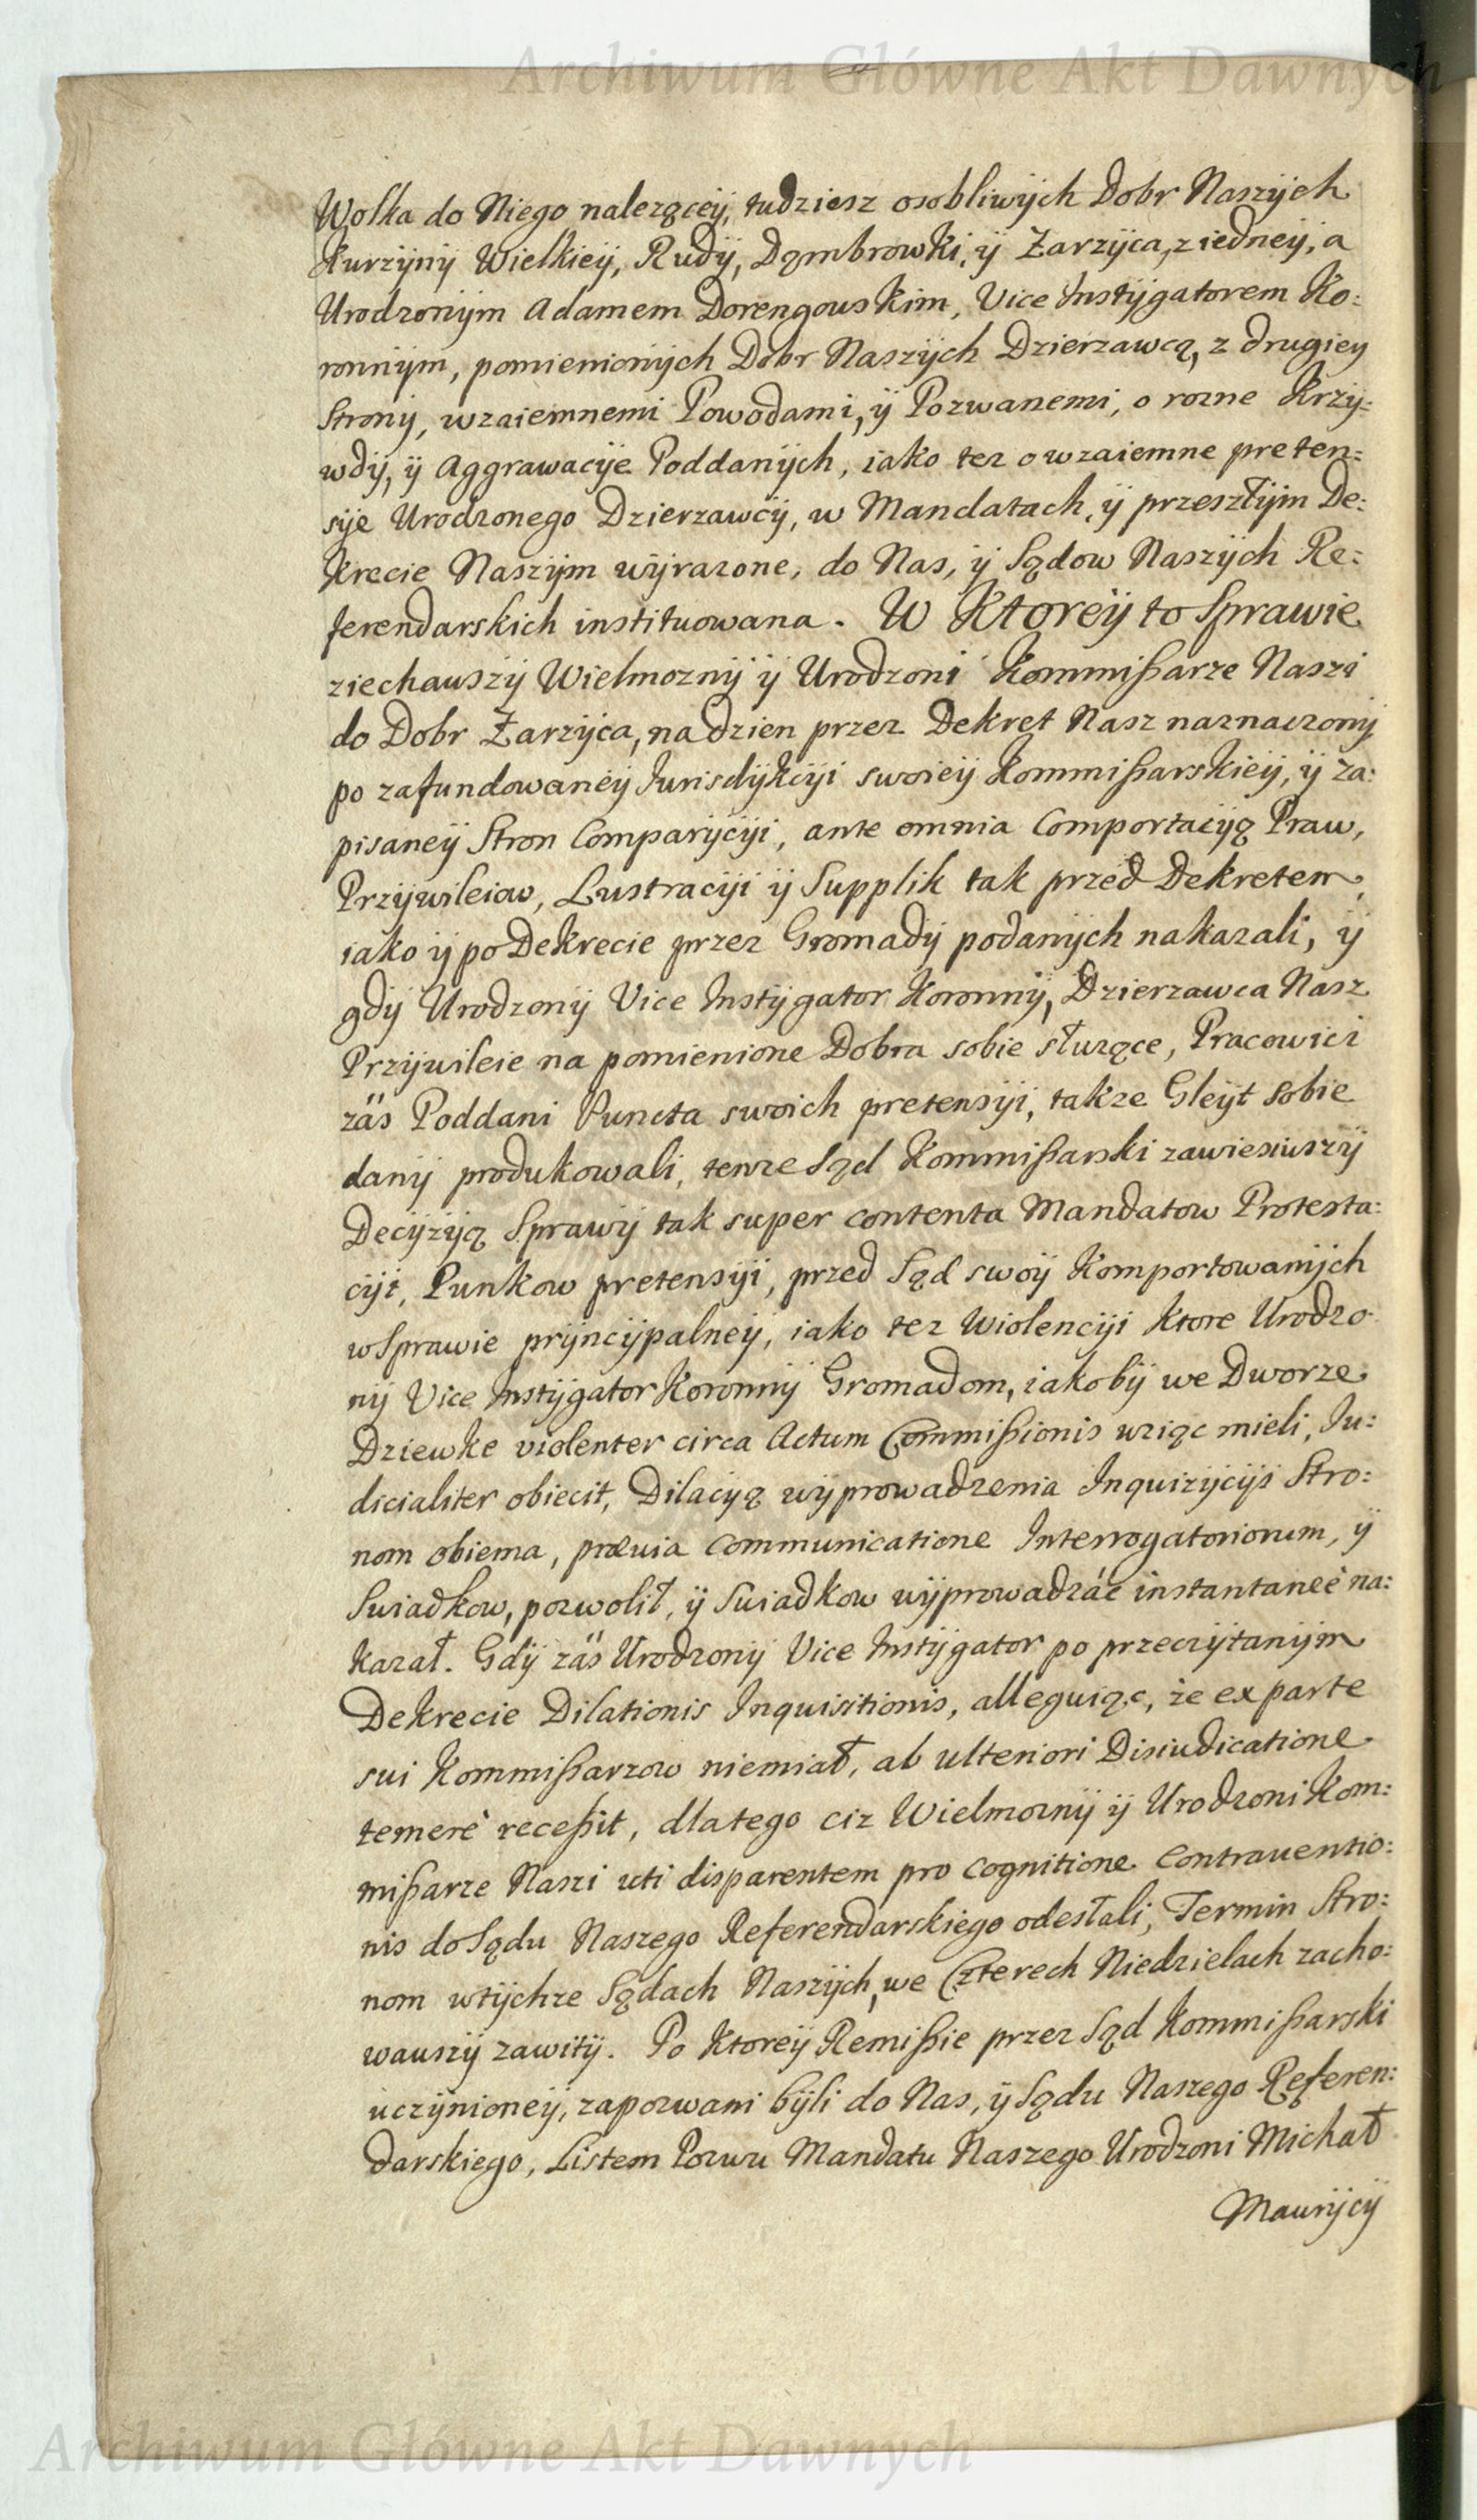 Archiwum Główne Akt Dawnych
Wolka do Niego nalezącey, tudziesz osobliwych Dobr Naszych
Kurzyny Wielkiey, Rudy, Dąmbrowki, y Zarzyca, z iedney, a
Urodzonym Adamem Dorengouskim, Vice Instygatorem Ko:
ronnym, pomienionych Dobr Naszych Dzierzawcą, z drugiey
Strony, wzaiemnemi Powodami, y Pozwanemi, o rozne Krzy:
wdy, y Aggrawacye Poddanych, iako tez o wzaiemne preten:
sye Urodzonego Dzierzawcy, w Mandatach, y przeszłym De:
krecie Naszym wyrazone, do Nas, y Sądow Naszych Re:
ferendarskich instituowana. W Ktorey to Sprawie
ziechauszy Wielmozny y Urodzoni Kommißarze Naszi
do Dobr Zarzyca, na dzien przez Dekret Nasz naznaczony
po zafundowaney Jurisdykcyi swoiey Kommißarskiey, y za:
pisaney Stron Comparycyi, ante omnia Comportacyą Praw,
Przywileiow, Lustracyi y Supplik tak przed Dekretem,
iako y po Dekrecie przez Gromady podanych nakazali, y
gdy Urodzony Vice Instygator Koronny, Dzierzawca Nasz
Przywileie na pomienione Dobra sobie słuzące, Pracowici
zäs Poddani Puncta swoich pretensyi, takze Gleyt sobie
dany produkowali, tenze Sąd Kommißarski zawiesiuszy
Decyzyą Sprawy tak super contenta Mandatow Protesta:
cyi, Punkow pretensyi, przed Sąd swoy Komportowanych
w Sprawie pryncypalney, iako tez Wiolencyi ktore Urodzo
ny Vice Instygator Koronny Gromadom, iakoby we Dworze
Dziewke violenter circa Actum Commißionis wziąc mieli, Ju:
dicialiter obiecit, Dilacyą wyprowadzenia Inquizycyi Stro:
nom obiema, prævia communicatione Interrogatoriorum, y
Swiadkow, pozwolił, y Swiadkow wyprowadzác instantaneè na:
kazał. Gdy zäs Urodzony Vice Instygator po przeczytanym
Dekrecie Dilationis Inquisitionis, alleguiąc, że ex parte
sui Kommißarzow niemiał, ab ulteriori Disiudicatione
temerè receßit, dlatego ciz Wielmozny y Urodzoni Kom:
mißarze Naszi uti disparentem pro cognitione contrauentio:
nis do Sądu Naszego Referendarskiego odesłali, Termin Stro:
nom wtychze Sądach Naszych, we Czterech Niedzielach zacho:
wauszy zawity. Po Ktorey Remißie przez Sąd Kommißarski
uczynioney, zapozwani byli do Nas, y Sądu Naszego Referen:
darskiego, Listem Pozwu Mandatu Naszego Urodzoni Michał
Maurycy
Archiwum Główne Akt Dawnych